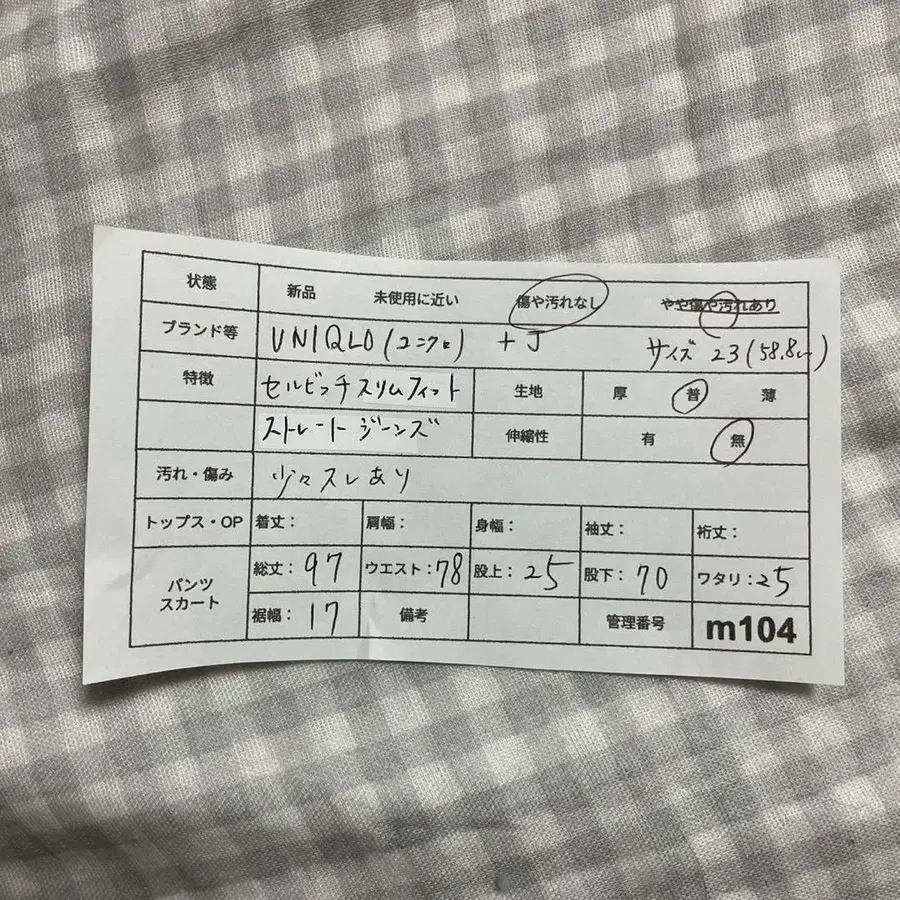 状態 新品 未使用に近い 傷や汚れなし やや傷や汚れあり
ブランド等 UNIQLO(ユニクロ) +J サイズ 23(58.8cm)
特徴 セルビッチスリムフィット 生地 厚 普 薄
ストレートジーンズ 伸縮性 有 無
汚れ・傷み 少々スレあり
トップス・OP 着丈: 肩幅: 身幅: 袖丈: 裄丈:
パンツ スカート 総丈:97 ウエスト:78 股上:25 股下:70 ワタリ:25
裾幅:17 備考 管理番号 m104